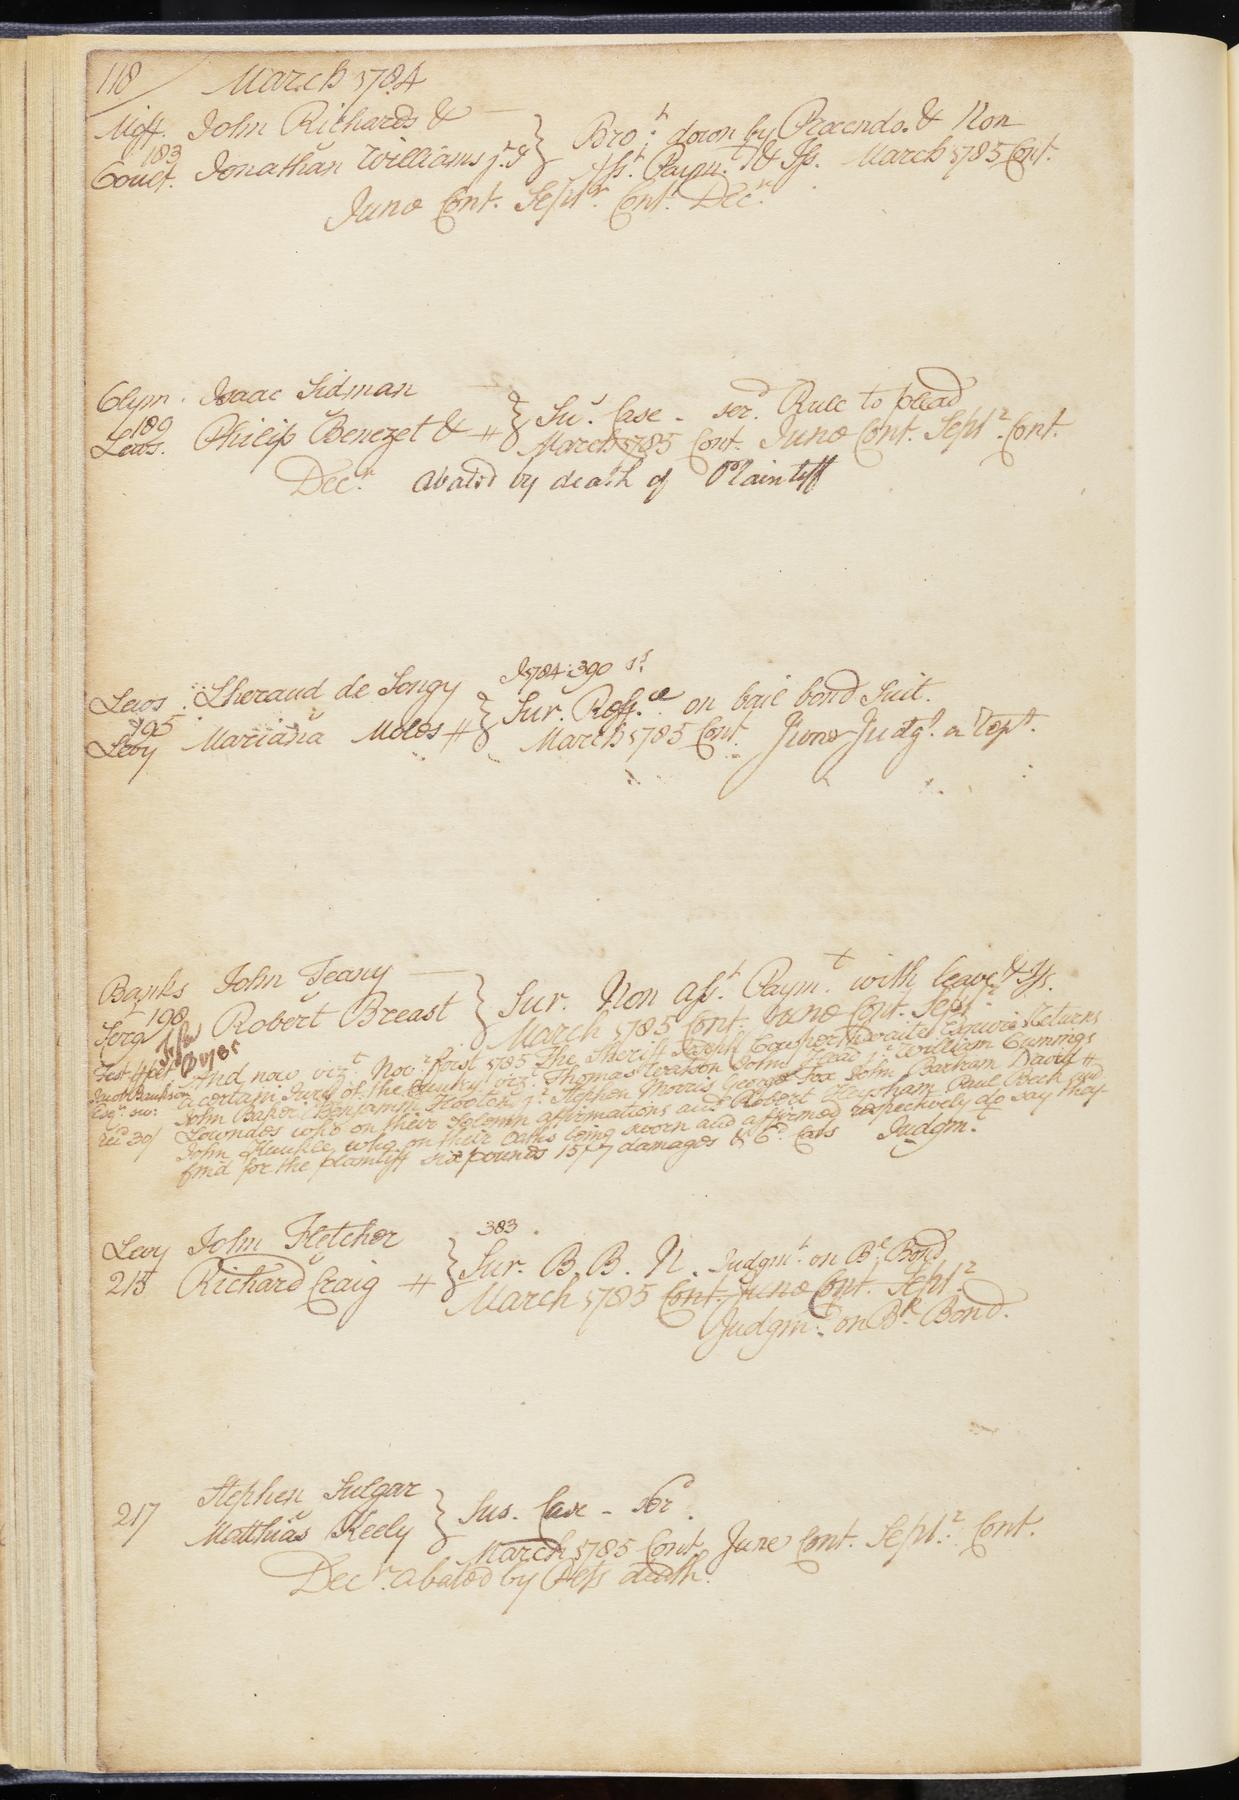 118 March 1784
Miff. John Richards &
183
Couct. Jonathan Williams jr. & } Brot. down by Procendo. & Non
Asst. Paymt. & Iss. March 1785 Cont.
June Cont. Septr. Cont. Decr.
Clym. Isaac Sidman
189
Lews. Philip Benezet & } Su. Case - serd. Rule to plead
March 1785 Cont. June Cont. Septr. Cont.
Decr. abated by death of Plaintiff
J 1784: 390
Lews. Lheraud de Songy
195
Levy Mariana Moles } Sur. Refce on bail bond Suit.
March 1785 Cont. June Judgt. a Rept.
Banks John Feany
198
Serg Robert Breast } Sur. Non asst. Paymt. with leave & Iss.
March 1785 Cont. June Cont. Septr.
And now vizt. Novr. first 1785 The Sheriff Joseph Cowperthwaite Esquire Returns
a certain Jury of the County vizt. Thomas Watson John Isaac jr. William Cummings
John Baker Benjamin Hooten jr. Stephen Morris George Fox John Bartram David
Lowndes who on their solemn affirmations and Robert Heysham Paul Beck and
John who on their Oaths being sworn and affirmed respectively do say they
find for the plaintiff six pounds 15/7 damages & 6d. Costs Judgmt.
383
Levy John Fletcher
213 Richard Craig } Sur. B. B. N. Judgmt. on Bl. Bond
March 1785 Cont. June Cont. Septr.
Judgmt. on Bl. Bond.
Stephen Sulgar
217 Matthias Keely } Sus. Case - serd.
March 1785 Cont. June Cont. Septr. Cont.
Decr. abated by death.